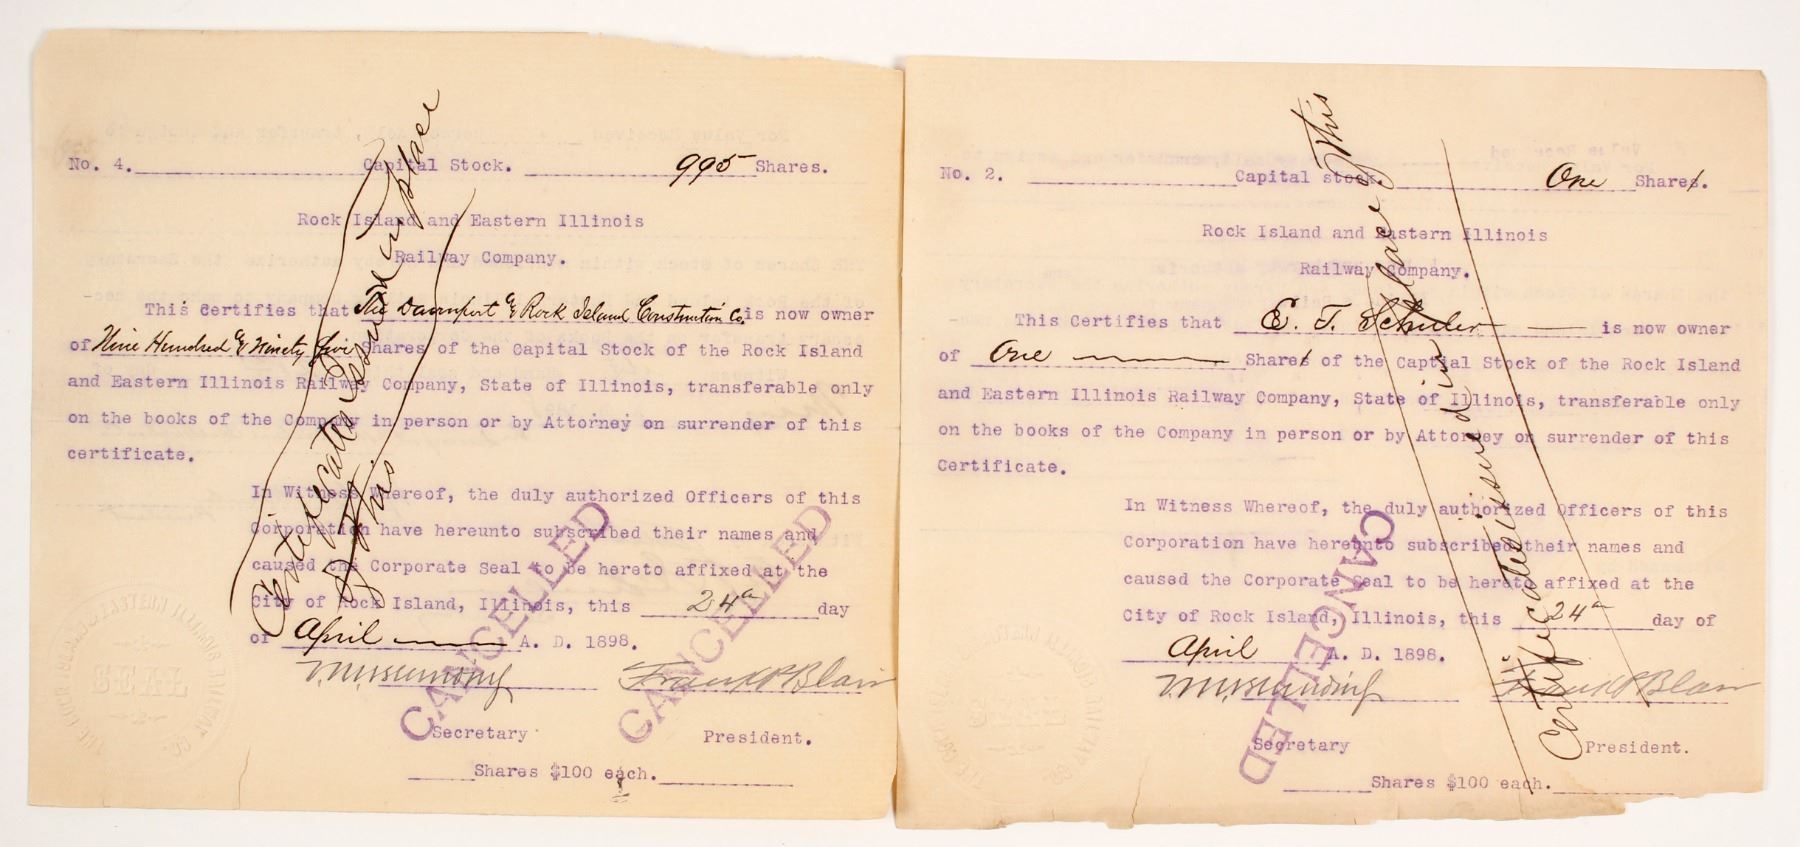 No. 4. Capital Stock. 995 Shares.
Rock Island and Eastern Illinois
Railway Company.
This Certifies that The Davenport & Rock Island Construction Co. is now owner
of Nine Hundred & Ninety five Shares of the Capital Stock of the Rock Island
and Eastern Illinois Railway Company, State of Illinois, transferable only
on the books of the Company in person or by Attorney on surrender of this
certificate.
In Witness Whereof, the duly authorized Officers of this
Corporation have hereunto subscribed their names and
caused the Corporate Seal to be hereto affixed at the
City of Rock Island, Illinois, this 24th day
of April A. D. 1898.
Frank P Blair
Secretary President.
Shares $100 each.
CANCELLED
CANCELLED
Certificate issued in place
of this
SEAL
No. 2. Capital stock. One Share.
Rock Island and Eastern Illinois
Railway Company.
This Certifies that E. T. Schuler is now owner
of One Share of the Captial Stock of the Rock Island
and Eastern Illinois Railway Company, State of Illinois, transferable only
on the books of the Company in person or by Attorney on surrender of this
Certificate.
In Witness Whereof, the duly authorized Officers of this
Corporation have hereunto subscribed their names and
caused the Corporate Seal to be hereto affixed at the
City of Rock Island, Illinois, this 24th day of
April A. D. 1898.
Frank P Blair
Secretary President.
Shares $100 each.
CANCELLED
Certificate issued in place of This
SEAL